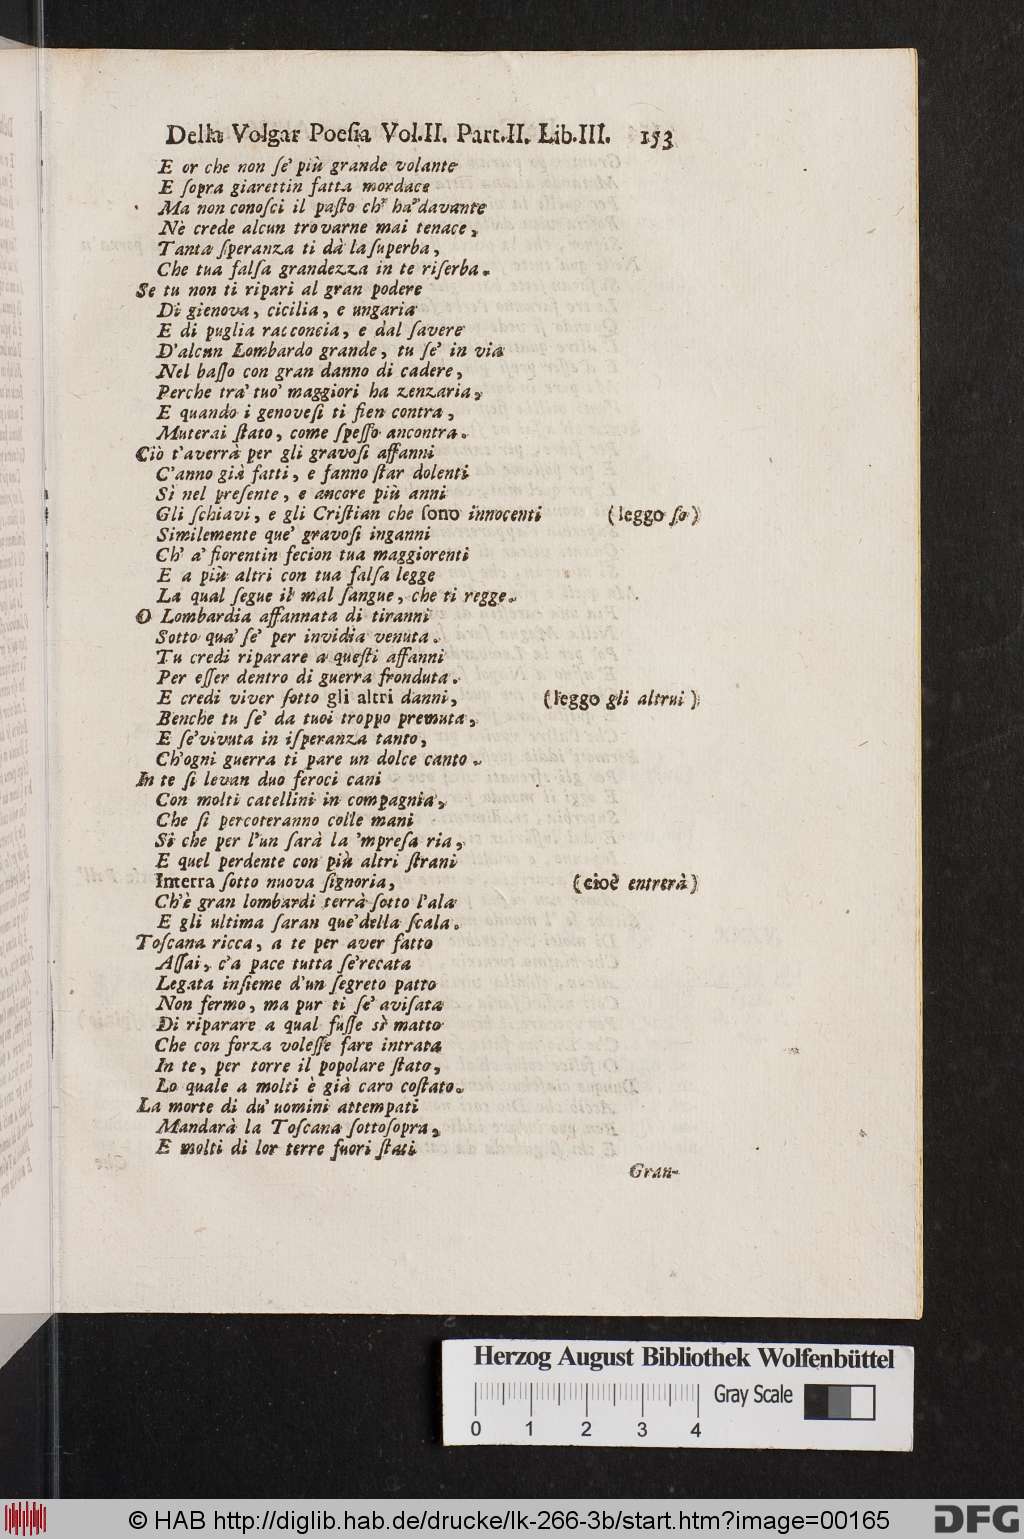 Della Volgar Poeſia Vol.II. Part.II. Lib.III. 153
E or che non ſe' più grande volante
E ſopra giarettin fatta mordace
Ma non conoſci il paſto ch' ha' davante
Nè crede alcun trovarne mai tenace,
Tanta ſperanza ti dà la ſuperba,
Che tua falſa grandezza in te riſerba.
Se tu non ti ripari al gran podere
Di gienova, cicilia, e ungaria
E di puglia racconcia, e dal ſavere
D'alcun Lombardo grande, tu ſe' in via
Nel baſſo con gran danno di cadere,
Perche tra' tuo' maggiori ha zenzaria,
E quando i genoveſi ti fien contra,
Muterai ſtato, come ſpeſſo ancontra.
Ciò t'averrà per gli gravoſi affanni
C'anno già fatti, e fanno ſtar dolenti
Sì nel preſente, e ancore più anni
Gli ſchiavi, e gli Criſtian che ſono innocenti (leggo ſo)
Similemente que' gravoſi inganni
Ch' a' fiorentin fecion tua maggiorenti
E a più altri con tua falſa legge
La qual ſegue il mal ſangue, che ti regge.
O Lombardia affannata di tiranni
Sotto qua' ſe' per invidia venuta.
Tu credi riparare a queſti affanni
Per eſſer dentro di guerra fronduta.
E credi viver ſotto gli altri danni, (leggo gli altrui)
Benche tu ſe' da tuoi troppo premuta,
E ſe' vivuta in iſperanza tanto,
Ch'ogni guerra ti pare un dolce canto.
In te ſi levan duo feroci cani
Con molti catellini in compagnia,
Che ſi percoteranno colle mani
Si che per l'un ſarà la 'mpreſa ria,
E quel perdente con più altri ſtrani
Interra ſotto nuova ſignoria, (cioè entrerà)
Ch'è gran lombardi terrà ſotto l'ala
E gli ultima ſaran que' della ſcala.
Toſcana ricca, a te per aver fatto
Aſſai, c'a pace tutta ſe' recata
Legata inſieme d'un ſegreto patto
Non fermo, ma pur ti ſe' aviſata
Di riparare a qual fuſſe sì matto
Che con forza voleſſe fare intrata
In te, per torre il popolare ſtato,
Lo quale a molti è già caro coſtato.
La morte di du' uomini attempati
Mandarà la Toſcana ſottoſopra,
E molti di lor terre fuori ſtati
Gran-
Herzog August Bibliothek Wolfenbüttel
Gray Scale
0 1 2 3 4
© HAB http://diglib.hab.de/drucke/lk-266-3b/start.htm?image=00165
DFG